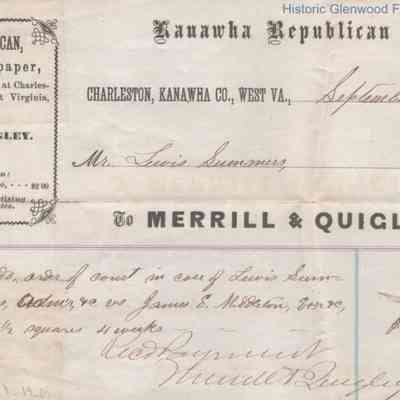 Historic Glenwood F
Kanawha Republican
CAN,
paper,
at Charles-
t Virginia,
GLEY.
$2 00
CHARLESTON, KANAWHA CO., WEST VA., Septemb
Mr. Lewis Summers,
To MERRILL & QUIGL
order of court in case of Lewis Sum-
Admr, &c vs. James E. Middleton, Exr &c,
½ squares 4 weeks
Rec'd Payment
Merrill & Quigley